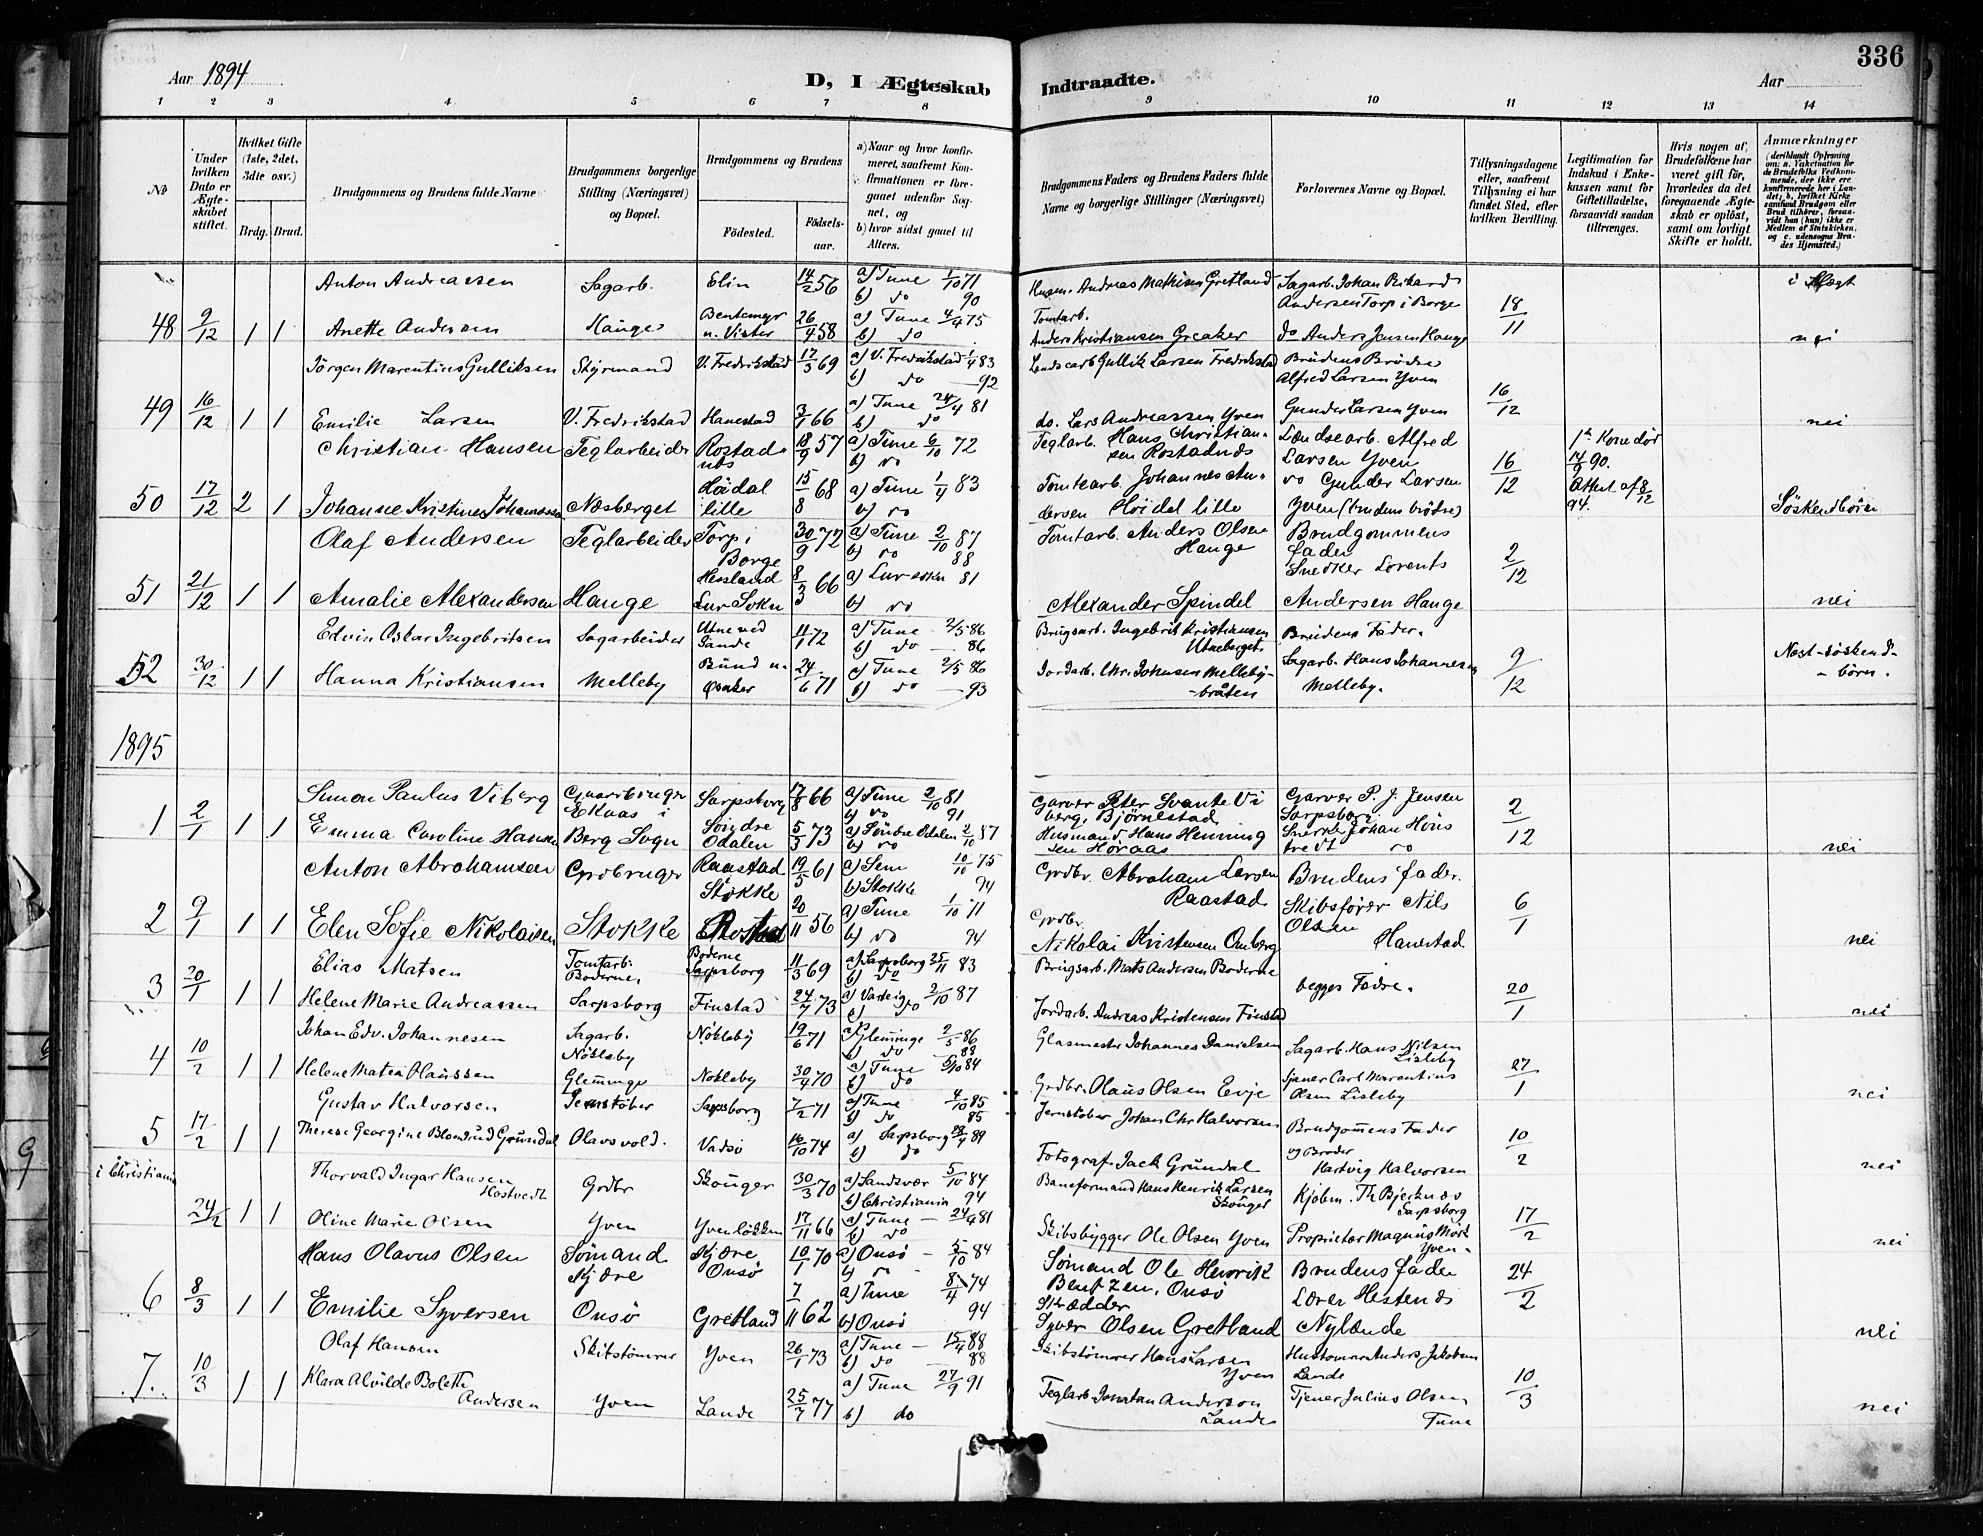 336
Aar 1894
D, I Ægteskab
Indtraadte.
Aar
1 2 3 4 5 6 7 8 9 10 11 12 13 14
No
Under hvilken Dato er Ægteskabet stiftet.
Hvilket Gifte (1ste, 2det, 3die osv.)
Brdg. Brud.
Brudgommens og Brudens fulde Navne
Brudgommens borgerlige Stilling (Næringsvei) og Bopæl.
Brudgommens og Brudens
Födested.
Födselsaar.
a) Naar og hvor konfirmeret, saafremt Konfirmationen er foregaaet udenfor Sognet, og
b) hvor sidst gaaet til Alters.
Brudgommens Faders og Brudens Faders fulde Navne og borgerlige Stillinger (Næringsvei)
Forlovernes Navne og Bopæl.
Tillysningsdagene eller, saafremt Tillysning ei har fundet Sted, efter hvilken Bevilling.
Legitimation for Indskud i Enkekassen samt for Giftetilladelse, forsaavidt saadan tiltrænges.
Hvis nogen af Brudefolkene har været gift för, hvorledes da det foregaaende Ægteskab er oplöst, samt om lovligt Skifte er holdt.
Anmærkninger
(deriblandt Oplysning om: a. Vakcination for de Brudefolks Vedkommende, der ikke ere konfirmerede her i Landet; b. hvilket Kirkesamfund Brudgom eller Brud tilhører, forsaavidt han (hun) ikke er Medlem af Statskirken, og c. udensogns Brudes Hjemsted.)
Anton Andreassen Sagarb. Elin 14/2 56 a) Tune 1/10 71 b) do 90 Husm. Andreas Mathisen Gretland Sagarb. Johan Rikard Andersen Torp i Borge i Slægt
48 9/12 1 1 Anette Andersen Hauge Bentemyr u. Vister 26/4 58 a) Tune 4/4 75 b) do Tomtarb. Anders Kristiansen Greaker do Anders Jensen Hauge 18/11 nei
Jörgen Marentius Gulliksen Styrmand V. Fredrikstad 17/3 69 a) V. Fredrikstad 1/4 83 b) do 92 Landsearb Gullik Larsen Fredrikstad Brudens Brödre Alfred Larsen Yven
49 16/12 1 1 Emilie Larsen V. Fredrikstad Hanestad 3/1 66 a) Tune 24/4 81 b) do do. Lars Andreassen Yven Gunder Larsen Yven 16/12 nei
Christian Hansen Teglarbeider Rostadnds 18/9 57 a) Tune 6/10 72 b) do Teglarb. Hans Christiansen Rostadnds Lændsearb. Alfred Larsen Yven 1ste Kone död 14/9 90.
50 17/12 2 1 Johanne Kristine Johannessen Næsberget Höidal lille 15/8 68 a) Tune 1/4 83 b) do Tomtearb. Johannes Andersen Höidal lille do Gunder Larsen Yven (brudens brödre) 16/12 Attest af 8/12 94. Söskendbörn
Olaf Andersen Teglarbeider Torp i Borge 30/9 72 a) Tune 2/10 87 b) do 88 Tomtarb. Anders Olsen Hauge Brudgommens fader
51 21/12 1 1 Amalie Alexandersen Hauge Hesland Lur Sokn 8/3 66 a) Lur sokn 81 b) do Alexander Spindel Snedker Lorents Andersen Hauge 2/12 nei
Edvin Oskar Ingebritsen Sagarbeider Utne ved Sande 11/1 72 a) Tune 2/5 86 b) do 86 Brugsarb. Ingebrit Kristiansen Utneberget Brudens Fader.
52 30/12 1 1 Hanna Kristiansen Melleby Bund u. Osaker 24/6 71 a) Tune 2/5 86 b) do 93 Jordarb. Chr. Johnsen Mellebybråten Sagarb. Hans Johannesen Melleby. 9/12 Næst-söskendbörn.
1895
Simon Paulus Viberg Gaardbruger Ekaas i Sarpsborg 17/8 66 a) Tune 2/10 81 b) do 91 Garver Peter Svante Viberg, Björnstad Garver P. J. Jensen Sarpsborg
1 2/1 1 1 Emma Caroline Hansen Berg Sogn Söndre Odalen 5/3 73 a) Söndre Odalen 2/10 87 b) do Husmand Hans Henningsen Höraas Snerker Johan Höistredt do 2/12 nei
Anton Abrahamsen Grdbruger Raastad Stokke 19/5 61 a) Sem 10/10 75 b) Stokke 94 Grdbr. Abraham Larsen Raastad Brudens fader.
2 9/1 1 1 Elen Sofie Nikolaisen Stokke Rostad 20/11 56 a) Tune 1/10 71 b) do 94 Grdbr. Nikolai Kristensen Omberg Skibsförer Nils Olsen Hanestad 6/1 nei
Elias Matsen Tomtarb. Boderne, Boderne Sarpsborg 11/3 69 a) Sarpsborg 25/11 83 b) do Brugsarb. Mats Andersen Boderne
3 20/1 1 1 Helene Marie Andreassen Sarpsborg Finstad 24/7 73 a) Varteig 2/10 87 b) do Jordarb. Andreas Kristensen Finstad begges Fædre. 20/1 nei
Johan Edv. Johannesen Sagarb. Nökleby Nökleby 19/6 71 a) Glemmige 2/5 86 b) do 88 Glasmester Johannes Danielsen Sagarb. Hans Nilsen Lisleby
4 10/2 1 1 Helene Matea Olaussen Glemminge Nökleby 30/4 70 a) Tune 5/10 84 b) do Grdbr. Olaus Olsen Evje Tjener Carl Marentius Olsen Lisleby 27/1 nei
Gustav Halvorsen Jernstöber Sarpsborg 7/2 71 a) Tune 4/10 85 b) do 85 Jernstöber Johan Chr. Halvorsen Brudgommens Fader
5 17/2 1 1 Therese Georgine Blomlund Grundal Olavsvold. Vadsö 16/10 74 a) Sarpsborg 28/4 89 b) do Fotograf Jack Grundal og Broder Hartvig Halvorsen 10/2 nei
i Christiania Thorvald Ingar Hansen Hostvedt Grdbr Skouger 30/3 70 a) Sandsvær 5/10 84 b) Christiania 94 Baneformand Hans Henrik Larsen Skouger Kjöbm. Th. Bjerknæs Sarpsborg
24/2 1 1 Oline Marie Olsen Yven Yvenlökken 17/11 66 a) Tune 24/4 81 b) do Skibsbygger Ole Olsen Yven Proprietær Magnus Mörk Yven. 17/2 nei
Hans Olavus Olsen Sömand Kjære Kjære Onsö 10/1 70 a) Onsö 5/10 84 b) do Sömand Ole Henrik Bentzen, Onsö Brudens fader
6 8/3 1 1 Emilie Syversen Onsö Gretland 7/11 62 a) Tune 8/4 74 b) Onsö 94 Skrædder Syver Olsen Gretland Lærer Hestenæs Nylænde 24/2 nei
Olaf Hansen Skibstömrer Yven 26/1 73 a) Tune 15/4 88 b) do 88 Skibstömrer Hans Larsen Yven Hustömrer Anders Jakobsen Lande
7. 10/3 1 1 Klara Alvilde Bolette Andersen Yven Lande 25/7 77 a) Tune 27/9 91 b) do Teglarb. Jonatan Anderson Lande Tjener Julius Olsen Tune 10/3 nei